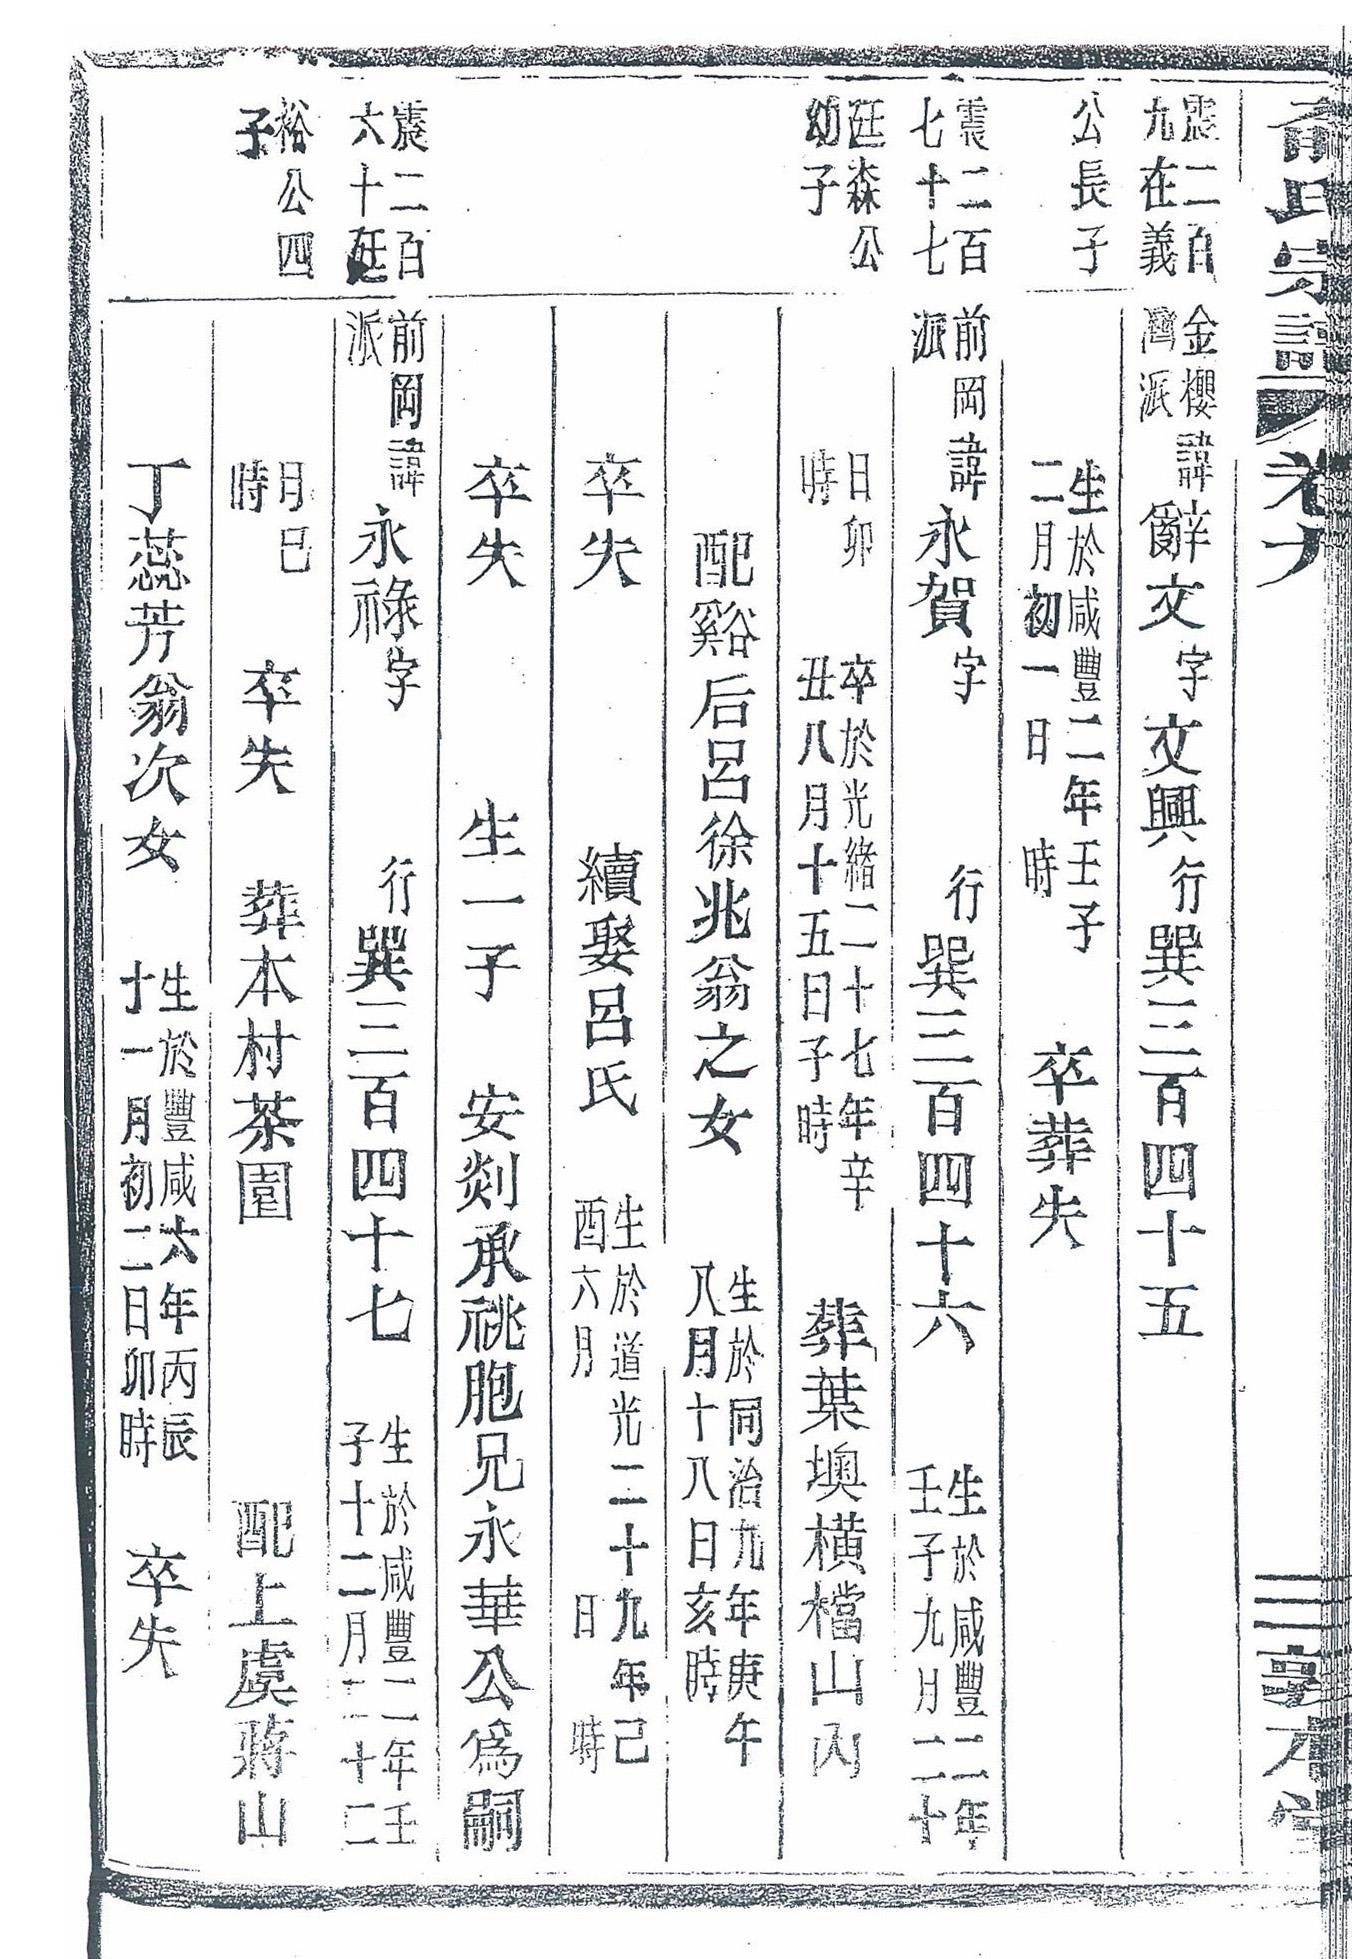 俞氏宗譜 卷九 三 敦本堂
震二百
九在義
金櫻
灣派
諱辭文字文興行巽三百四十五
公長子
生於咸豐二年壬子
二月初一日 時
卒葬失
震二百
七十七
前岡
派
諱永賀字 行巽三百四十六
生於咸豐二年
壬子九月二十
廷森公
幼子
日卯
時
卒於光緒二十七年辛
丑八月十五日子時
葬葉墺橫檔山內
配谿后呂徐兆翁之女
生於同治九年庚午
八月十八日亥時
卒失 續娶呂氏
生於道光二十九年己
酉六月 日 時
卒失 生一子 安剡承祧胞兄永華公為嗣
震二百
六十廷
前岡
派
諱永祿字 行巽三百四十七
生於咸豐二年壬
子十二月二十二
裕公四
子
月巳
時
卒失 葬本村茶園 配上虞蔣山
丁蕊芳翁次女
生於豐咸六年丙辰
十一月初二日卯時
卒失